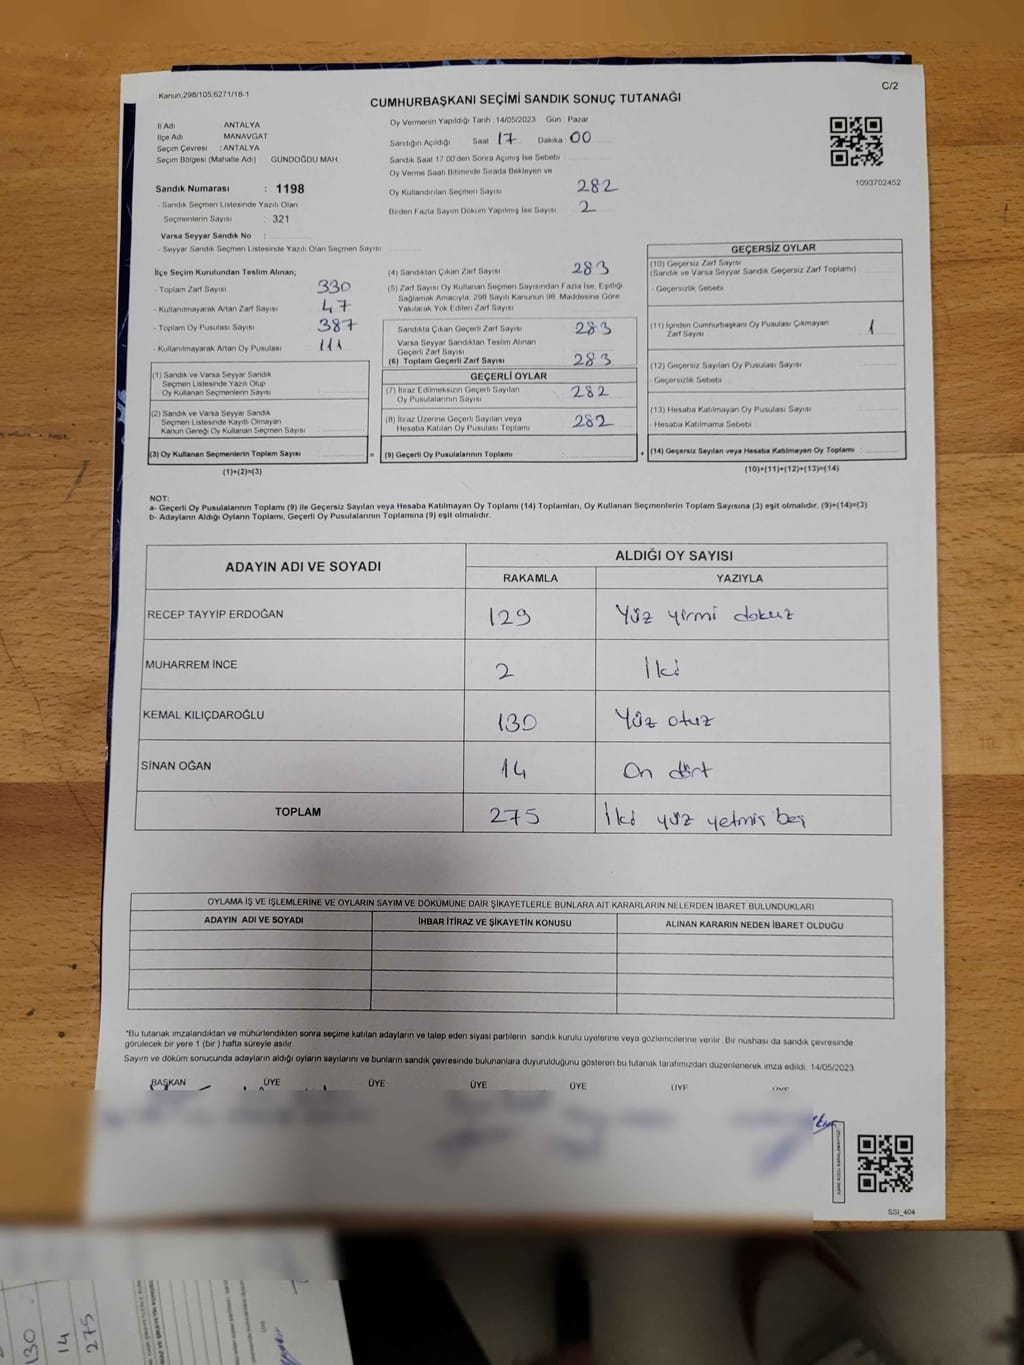 Kanun,298/105,6271/18-1
C/2
CUMHURBAŞKANI SEÇİMİ SANDIK SONUÇ TUTANAĞI
İl Adı ANTALYA
İlçe Adı MANAVGAT
Seçim Çevresi : ANTALYA
Seçim Bölgesi (Mahalle Adı) GÜNDOĞDU MAH
Oy Vermenin Yapıldığı Tarih 14/05/2023 Gün Pazar
Sandığın Açıldığı Saat 17 Dakika 00
Sandık Saat 17.00'den Sonra Açımış İse Sebebi
Oy Verme Saati Bitiminde Sırada Bekleyen ve
Oy Kullandırılan Seçmen Sayısı 282
Birden Fazla Sayım Döküm Yapılmış İse Sayısı 2
1093702452
Sandık Numarası : 1198
- Sandık Seçmen Listesinde Yazılı Olan
Seçmenlerin Sayısı : 321
Varsa Seyyar Sandık No :
- Seyyar Sandık Seçmen Listesinde Yazılı Olan Seçmen Sayısı
İlçe Seçim Kurulundan Teslim Alınan;
- Toplam Zarf Sayısı 330
- Kullanılmayarak Artan Zarf Sayısı 47
- Toplam Oy Pusulası Sayısı 387
- Kullanılmayarak Artan Oy Pusulası 111
(1) Sandık ve Varsa Seyyar Sandık
Seçmen Listesinde Yazılı Olup
Oy Kullanan Seçmenlerin Sayısı
(2) Sandık ve Varsa Seyyar Sandık
Seçmen Listesinde Kayıtlı Olmayan
Kanun Gereği Oy Kullanan Seçmen Sayısı
(3) Oy Kullanan Seçmenlerin Toplam Sayısı =
(1)+(2)=(3)
(4) Sandıktan Çıkan Zarf Sayısı 283
(5) Zarf Sayısı Oy Kullanan Seçmen Sayısından Fazla İse, Eşitliği
Sağlamak Amacıyla, 298 Sayılı Kanunun 98. Maddesine Göre
Yakılarak Yok Edilen Zarf Sayısı
Sandıkta Çıkan Geçerli Zarf Sayısı 283
Varsa Seyyar Sandıktan Teslim Alınan
Geçerli Zarf Sayısı
(6) Toplam Geçerli Zarf Sayısı 283
GEÇERLİ OYLAR
(7) İtiraz Edilmeksizin Geçerli Sayılan
Oy Pusulalarının Sayısı 282
(8) İtiraz Üzerine Geçerli Sayılan veya
Hesaba Katılan Oy Pusulası Toplamı 282
(9) Geçerli Oy Pusulalarının Toplamı : +
GEÇERSİZ OYLAR
(10) Geçersiz Zarf Sayısı
(Sandık ve Varsa Seyyar Sandık Geçersiz Zarf Toplamı)
- Geçersizlik Sebebi
(11) İçinden Cumhurbaşkanı Oy Pusulası Çıkmayan
Zarf Sayısı 1
(12) Geçersiz Sayılan Oy Pusulası Sayısı
- Geçersizlik Sebebi
(13) Hesaba Katılmayan Oy Pusulası Sayısı
- Hesaba Katılmama Sebebi
(14) Geçersiz Sayılan veya Hesaba Katılmayan Oy Toplamı :
(10)+(11)+(12)+(13)=(14)
NOT:
a- Geçerli Oy Pusulalarının Toplamı (9) ile Geçersiz Sayılan veya Hesaba Katılmayan Oy Toplamı (14) Toplamları, Oy Kullanan Seçmenlerin Toplam Sayısına (3) eşit olmalıdır. (9)+(14)=(3)
b- Adayların Aldığı Oyların Toplamı, Geçerli Oy Pusulalarının Toplamına (9) eşit olmalıdır.
ADAYIN ADI VE SOYADI ALDIĞI OY SAYISI
RAKAMLA YAZIYLA
RECEP TAYYİP ERDOĞAN 129 Yüz yirmi dokuz
MUHARREM İNCE 2 İki
KEMAL KILIÇDAROĞLU 130 Yüz otuz
SİNAN OĞAN 14 On dört
TOPLAM 275 İki yüz yetmiş beş
OYLAMA İŞ VE İŞLEMLERİNE VE OYLARIN SAYIM VE DÖKÜMÜNE DAİR ŞİKAYETLERLE BUNLARA AİT KARARLARIN NELERDEN İBARET BULUNDUKLARI
ADAYIN ADI VE SOYADI İHBAR İTİRAZ VE ŞİKAYETİN KONUSU ALINAN KARARIN NEDEN İBARET OLDUĞU
*Bu tutanak imzalandıktan ve mühürlendikten sonra seçime katılan adayların ve talep eden siyasi partilerin sandık kurulu üyelerine veya gözlemcilerine verilir. Bir nushası da sandık çevresinde
görülecek bir yere 1 (bir) hafta süreyle asılır.
Sayım ve döküm sonucunda adayların aldığı oyların sayılarını ve bunların sandık çevresinde bulunanlara duyurulduğunu gösteren bu tutanak tarafımızdan düzenlenerek imza edildi. 14/05/2023
BAŞKAN ÜYE ÜYE ÜYE ÜYE ÜYE ÜYE
SSI_404
130
14
275